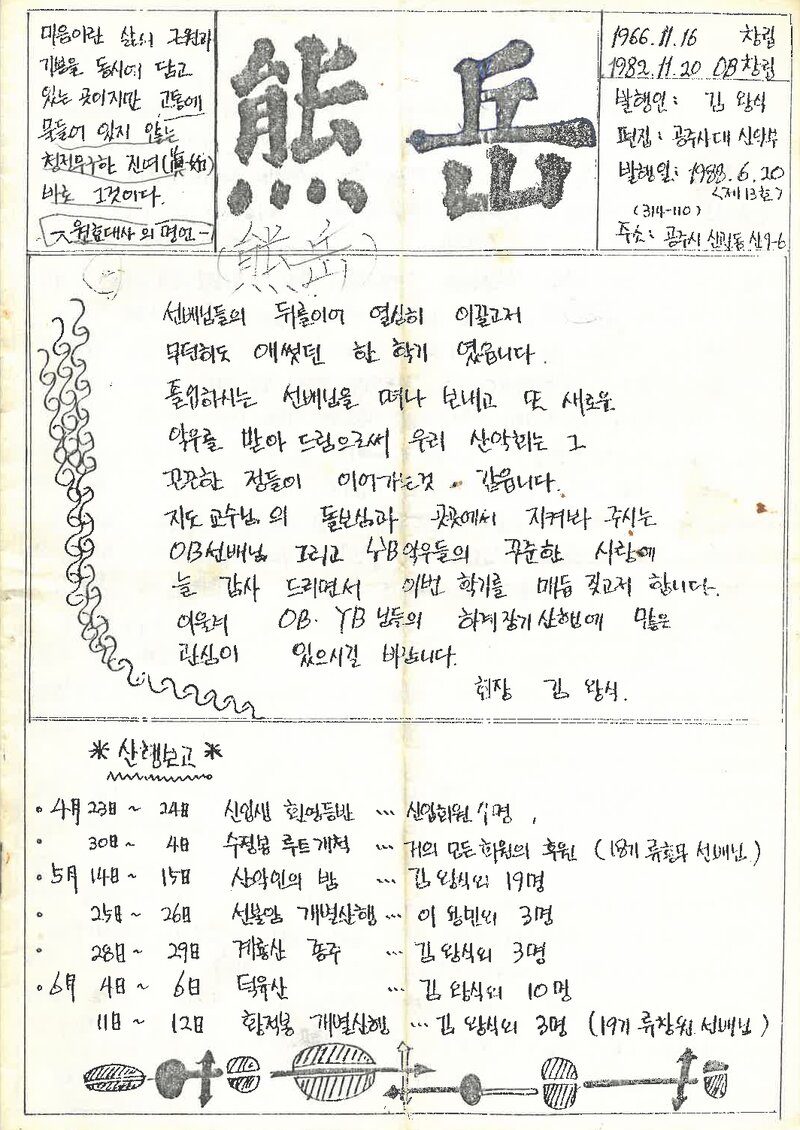 마음이란 삶의 근원과
기본을 동시에 담고
있는 곳이지만 고통에
물들어 있지 않는
청정무구한 진여(眞如)
바로 그것이다.
-원효대사의 명언-
熊岳
(熊岳)
1966.11.16 창립
1982.11.20 OB창립
발행인: 김 왕식
편집: 공주사대 산악부
발행일: 1988.6.20
<제13호>
(314-110)
주소: 공주시 신관동 산9-6
선배님들의 뒤를이어 열심히 이끌고저
무던히도 애썼던 한 학기 였읍니다.
졸업하시는 선배님을 떠나 보내고 또 새로운
악우를 받아 드림으로써 우리 산악회는 그
끈끈한 정들이 이어가는것 같읍니다.
지도교수님의 돌보심과 곳곳에서 지켜봐 주시는
OB선배님 그리고 YB악우들의 꾸준한 사랑에
늘 감사 드리면서 이번 학기를 매듭 짖고저 합니다.
아울러 OB. YB님들의 하계장기산행에 많은
관심이 있으시길 바랍니다.
회장 김 왕식.
* 산행보고 *
• 4月 23日 ~ 24日 신입생 환영등반 … 신입회원 명
• 30日 ~ 4日 수정봉 루트개척 … 거의 모든회원의 후원 (18기 선배님)
• 5月 14日 ~ 15日 산악인의 밤 … 김 왕식외 19명
• 25日 ~ 26日 선불암 개별산행 … 이 왕민외 3명
• 28日 ~ 29日 계룡산 종주 … 김 왕식외 3명
• 6月 4日 ~ 6日 덕유산 … 김 왕식외 10명
11日 ~ 12日 황적봉 개별산행 … 김 왕식외 3명 (19기 류창원 선배님)